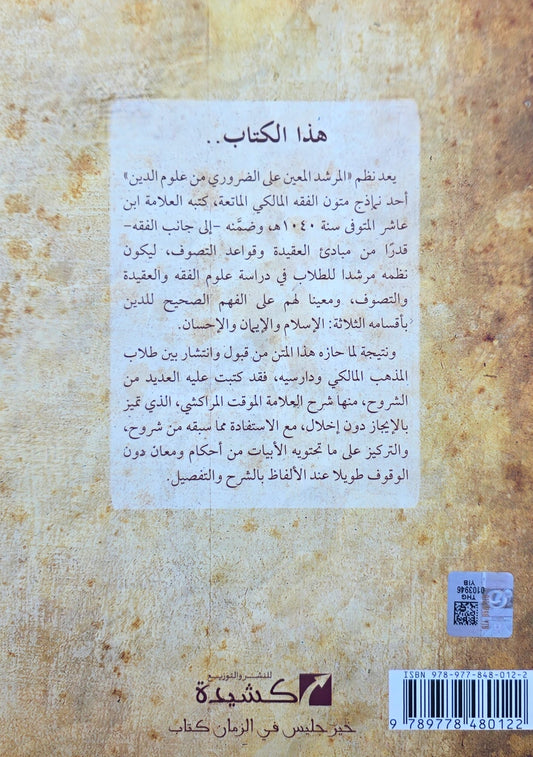 هذا الكتاب..
يعد نظم «المرشد المعين على الضروري من علوم الدين»
أحد نماذج متون الفقه المالكي الماتعة، كتبه العلامة ابن
عاشر المتوفى سنة ١٠٤٠هـ، وضمَّنه -إلى جانب الفقه-
قدرًا من مبادئ العقيدة وقواعد التصوف، ليكون
نظمه مرشدا للطلاب في دراسة علوم الفقه والعقيدة
والتصوف، ومعينا لهم على الفهم الصحيح للدين
بأقسامه الثلاثة: الإسلام والإيمان والإحسان.
ونتيجة لما حازه هذا المتن من قبول وانتشار بين طلاب
المذهب المالكي ودارسيه، فقد كتبت عليه العديد من
الشروح، منها شرح العلامة الموقت المراكشي، الذي تميز
بالإيجاز دون إخلال، مع الاستفادة مما سبقه من شروح،
والتركيز على ما تحتويه الأبيات من أحكام ومعان دون
الوقوف طويلا عند الألفاظ بالشرح والتفصيل.
THG
YIB
0103946
للنشر والتوزيع
كشيدة
خير جليس في الزمان كتاب
ISBN 978-977-848-012-2
9 789778 480122